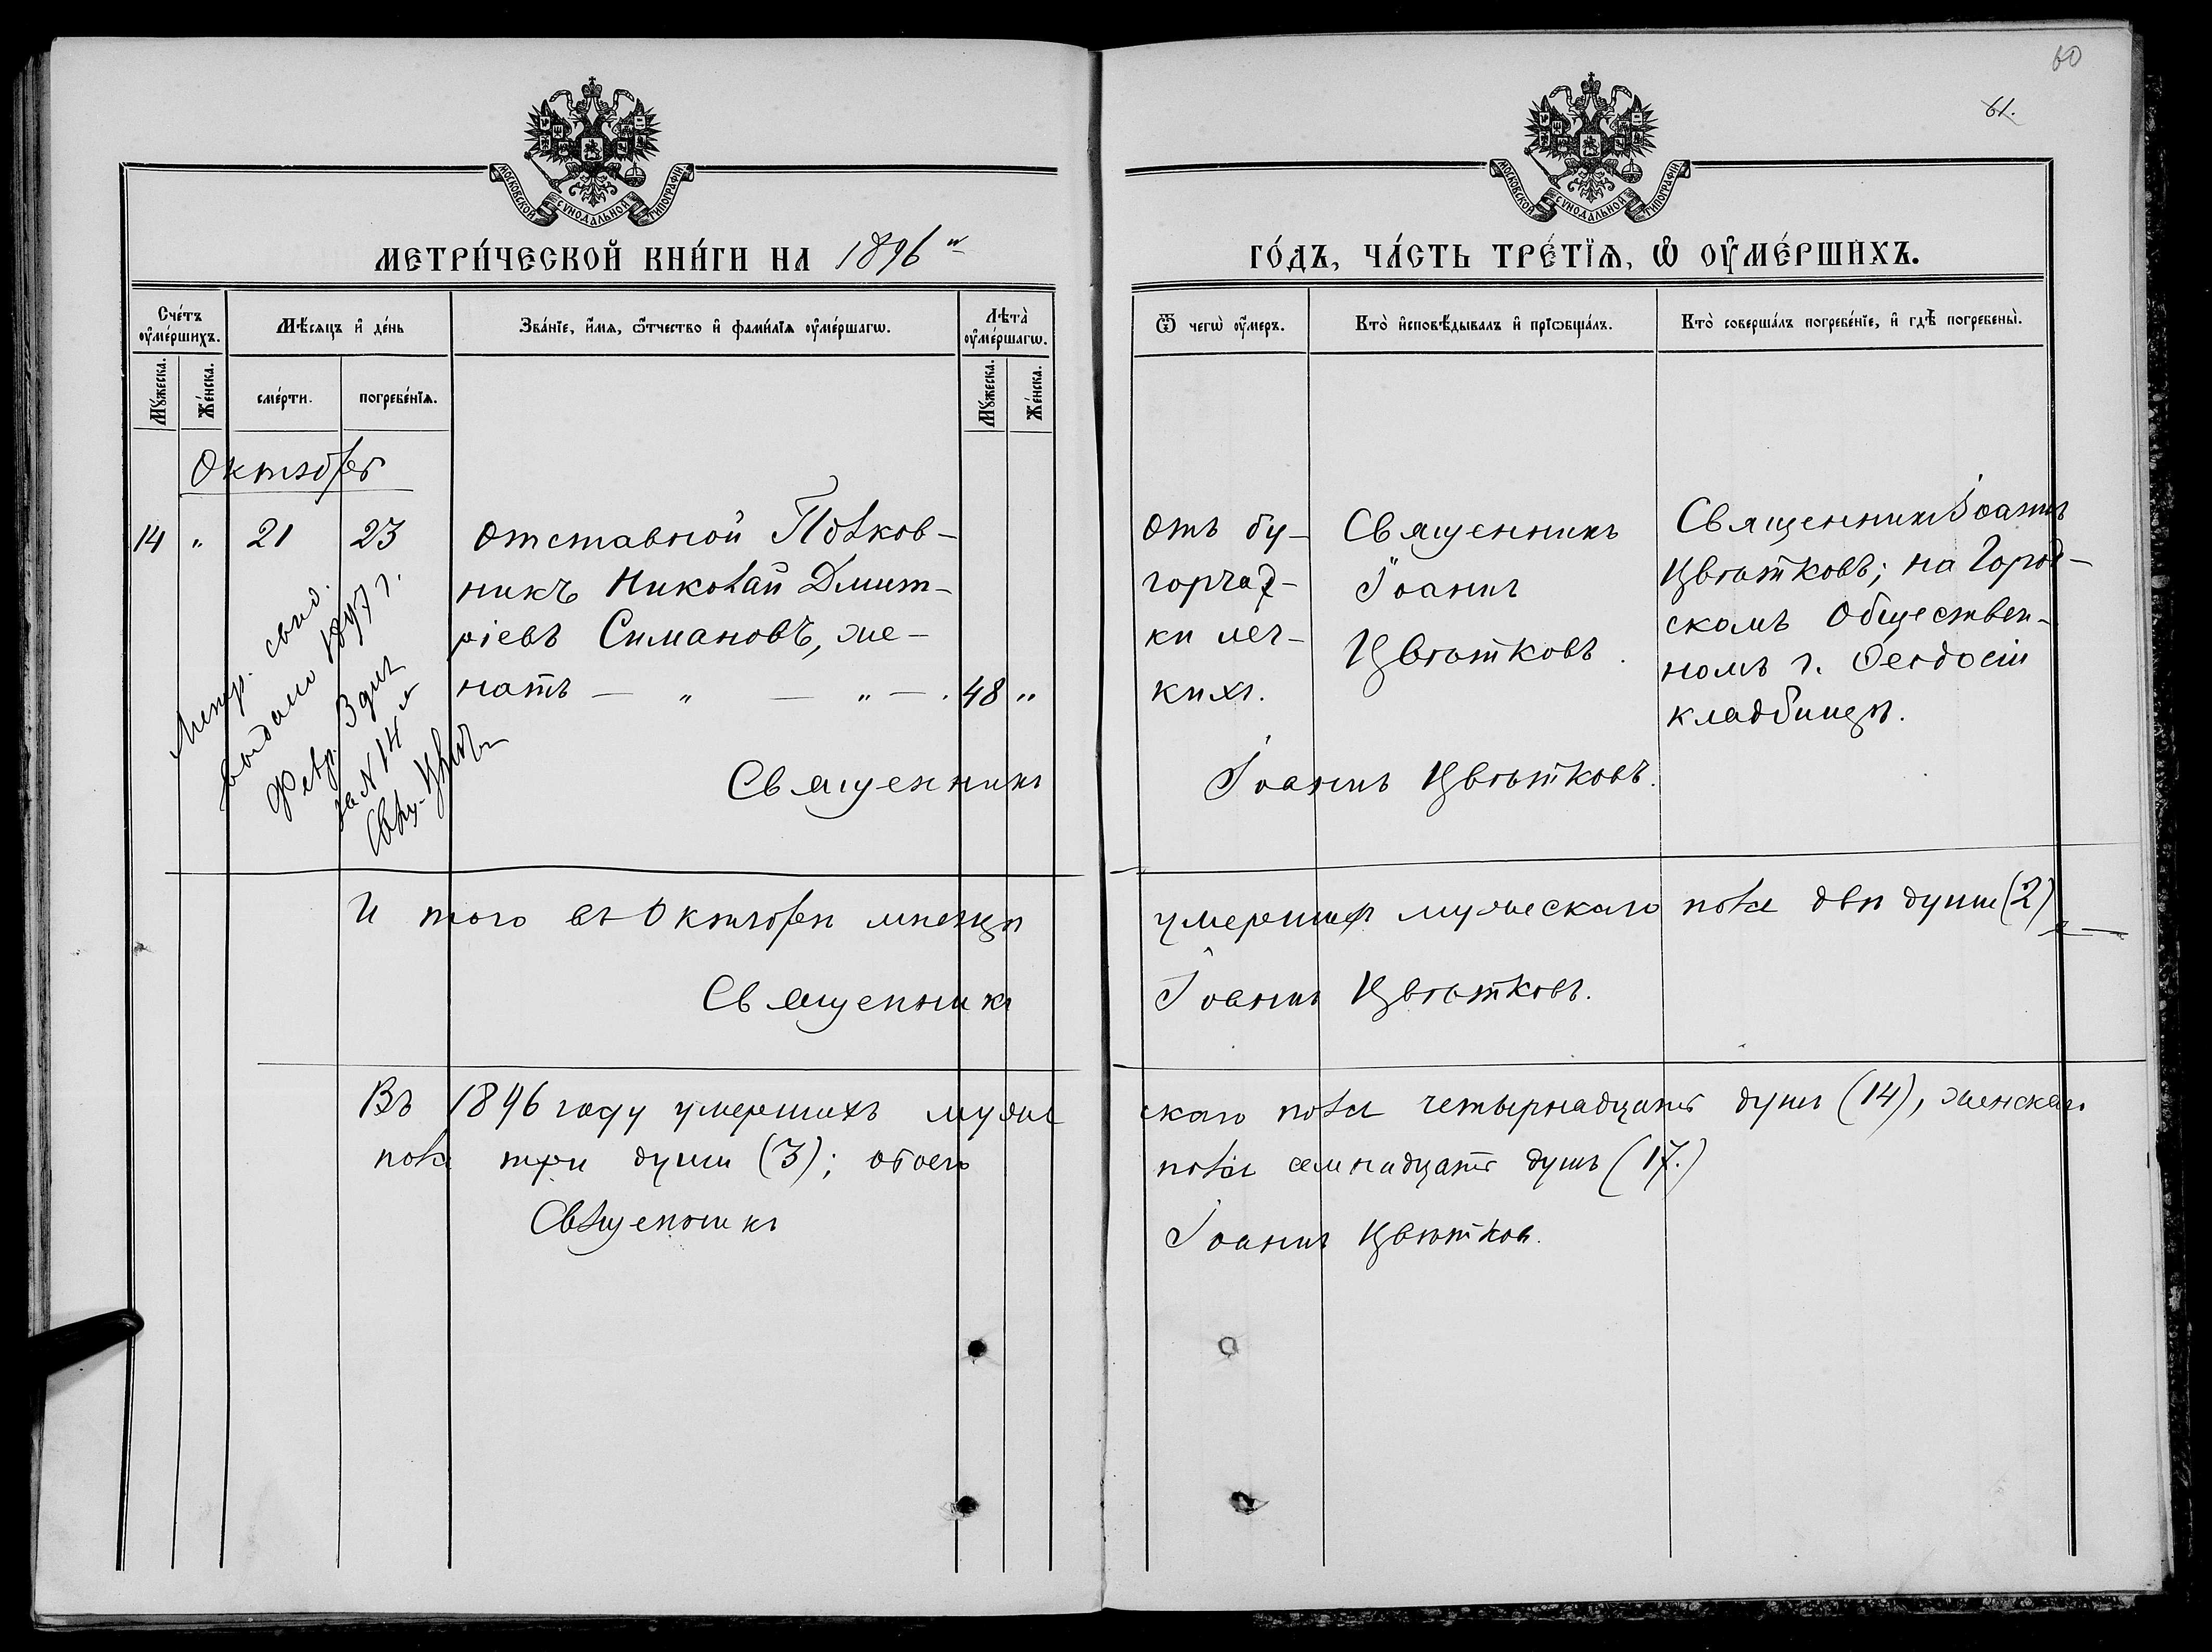 60
61.
МОСКОВСКОЙ СѴНОДАЛЬНОЙ ТИПОГРАФІИ
МОСКОВСКОЙ СѴНОДАЛЬНОЙ ТИПОГРАФІИ
МЕТРИ́ЧЕСКОЙ КНИ́ГИ НА 1896 й
ГО́ДЪ, ЧА́СТЬ ТРЕ́ТЇѦ, Ѡ҆ ОУ҆МЕ́РШИХЪ.
Сче́тъ оу҆ме́ршихъ.
Мꙋ́жеска.
Же́нска.
Мѣ́сяцъ и҆ де́нь
сме́рти.
погребе́нїѧ.
Зва́нїе, и҆́мѧ, ѻ҆́тчество и҆ фами́лїѧ оу҆ме́ршагѡ.
Лѣта̀ оу҆ме́ршагѡ.
Мꙋ́жеска.
Же́нска.
Ѿ чегѡ̀ оу҆́меръ.
Кто̀ и҆сповѣ́дывалъ и҆ прїѡбща́лъ.
Кто̀ соверша́лъ погребе́нїе, и҆ гдѣ̀ погребены̀.
Октябрь
14 " 21 23
Отставной Полков-
никъ Николай Дмит-
ріевъ Симановъ, же-
натъ — " — " — . 48 "
Отъ бу-
горчат-
ки лег-
кихъ.
Священникъ
Іоаннъ
Цвѣтковъ.
Священникъ Іоаннъ
Цвѣтковъ; на Город-
скомъ Обществен-
номъ г. Ѳеодосіи
кладбищѣ.
Метр. свид.
выдано 1897 г.
Февр. 3 дня
за № 14 м
Свящ. Цвѣтк
Священникъ Іоаннъ Цвѣтковъ.
И того въ Октябрѣ мѣсяцѣ умершихъ мужескаго пола двѣ души (2)
Священникъ Іоаннъ Цвѣтковъ.
Въ 1896 году умершихъ мужескаго пола четырнадцать душъ (14), женскаго
пола три души (3); обоего пола семнадцать душъ (17.)
Священникъ Іоаннъ Цвѣтков.